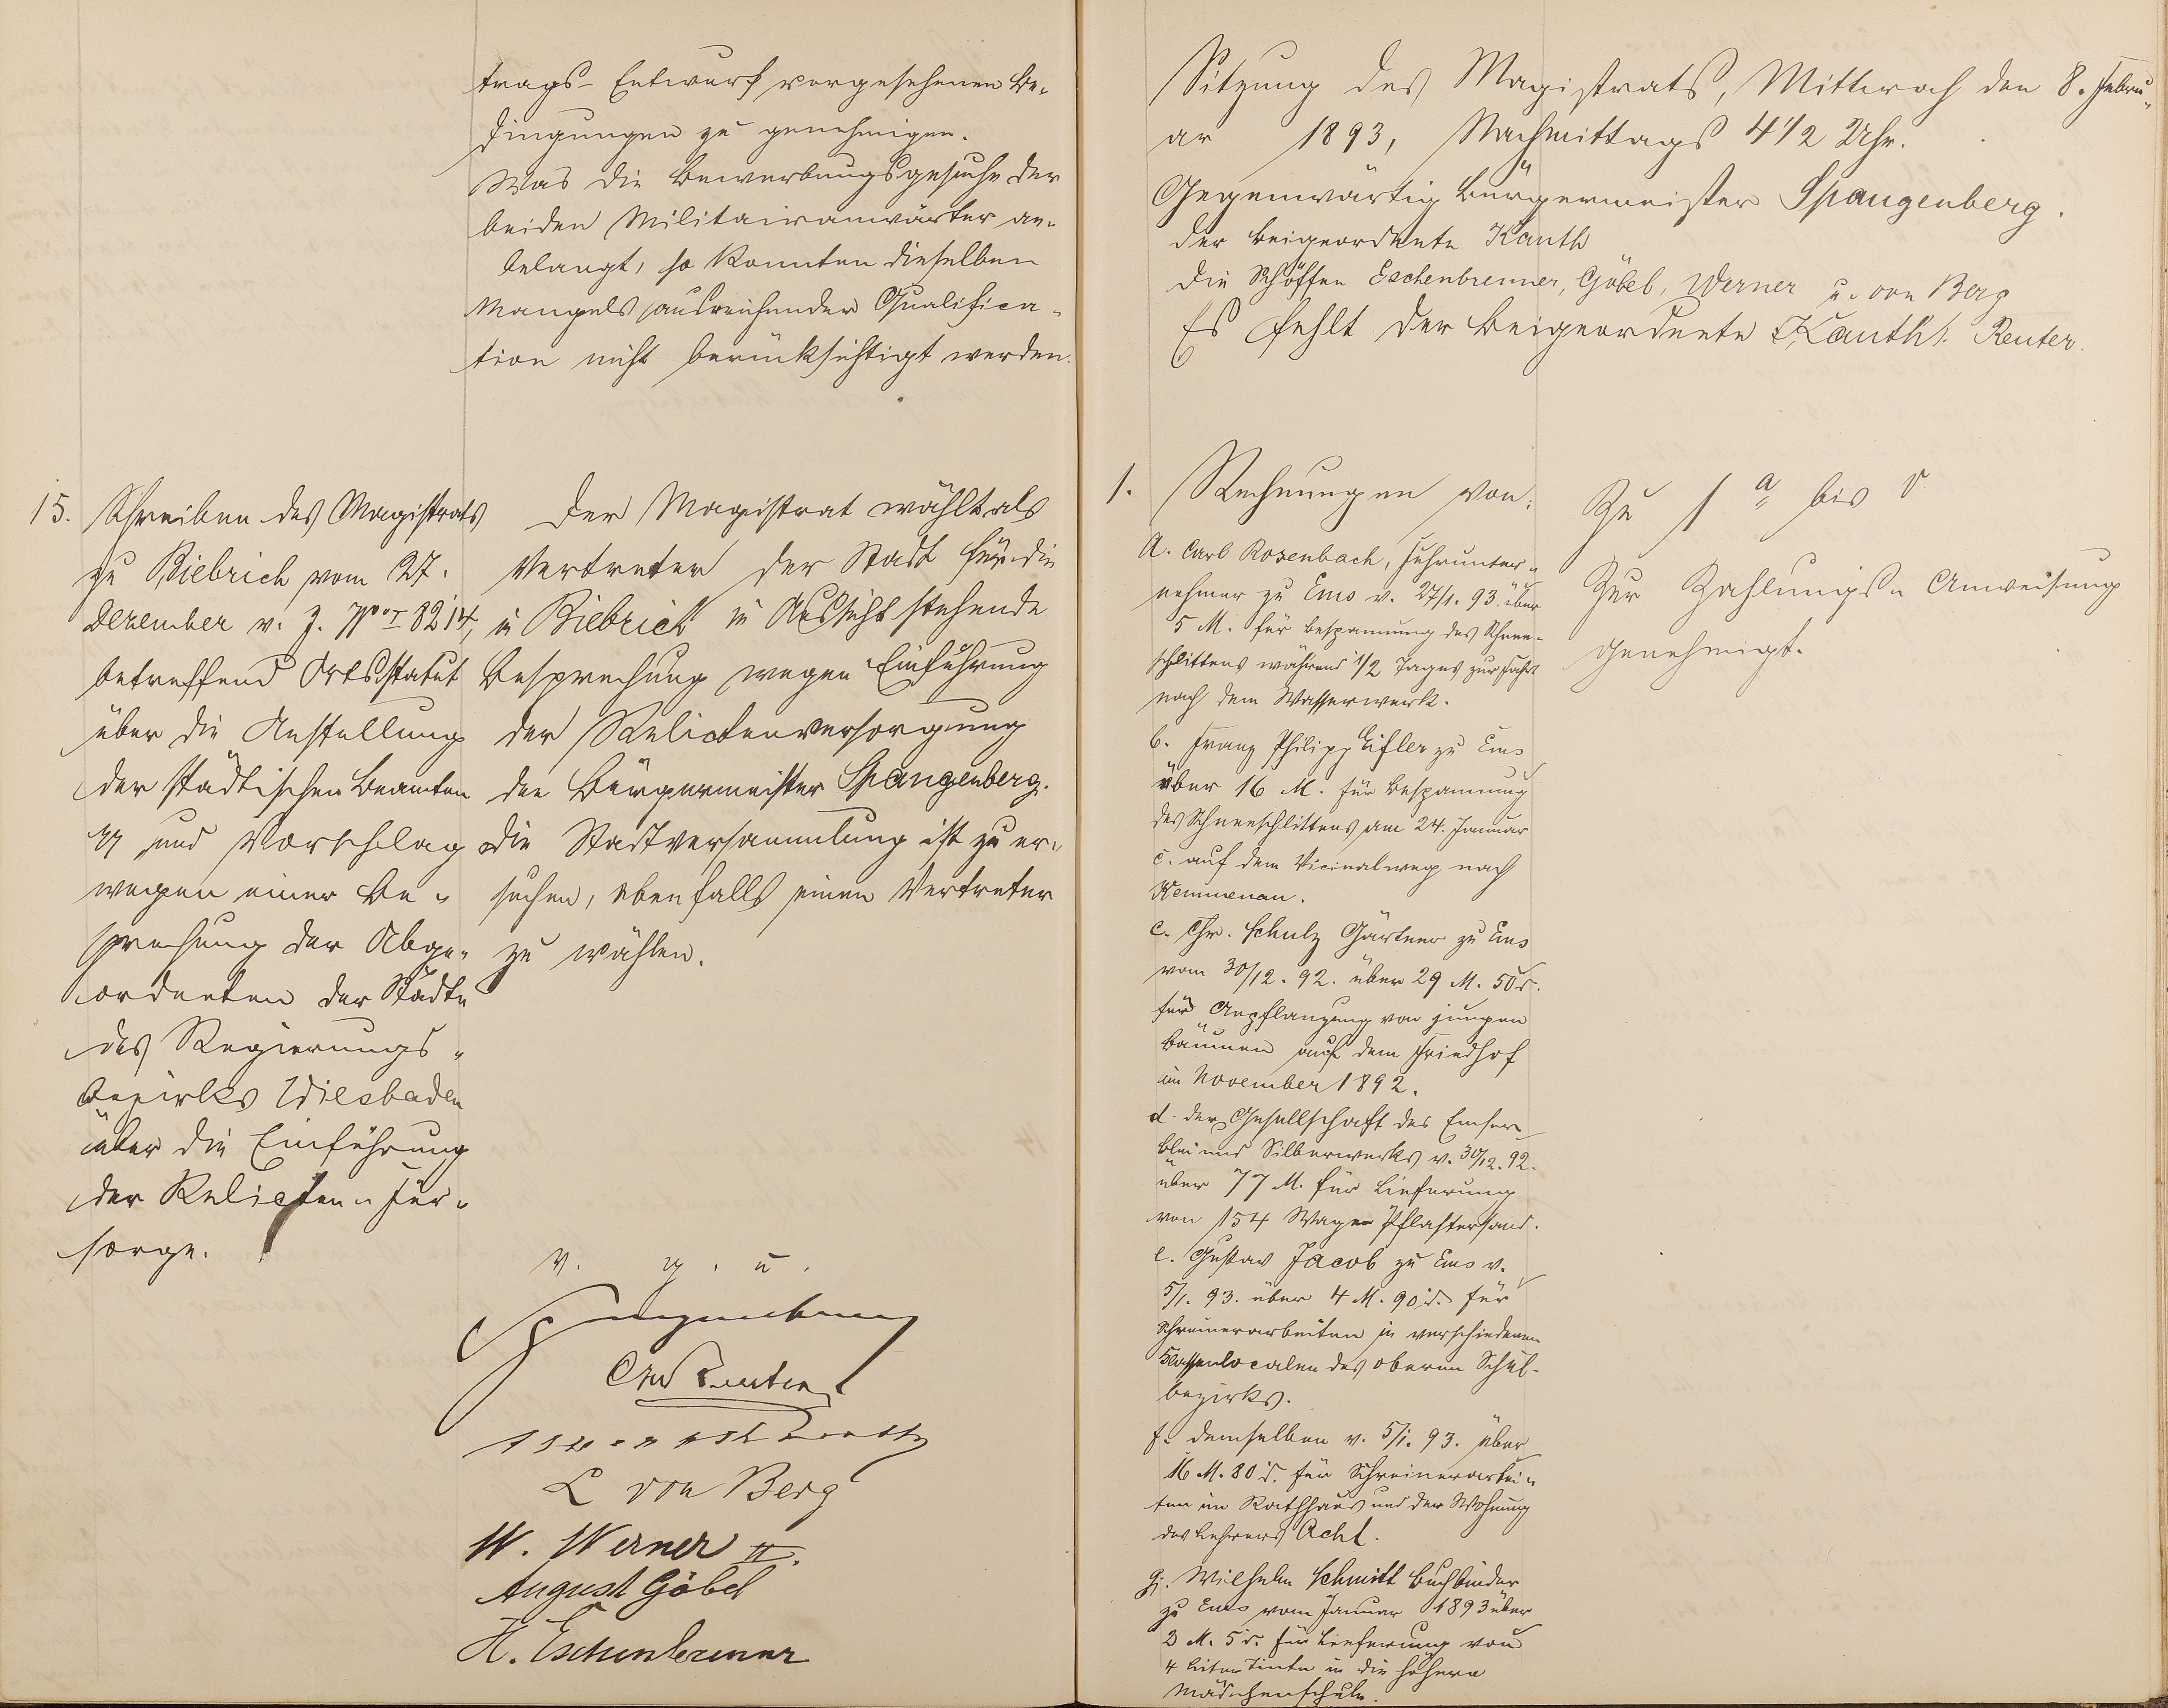 trags- Entwurf vorgesehenen Be-
dingungen zu genehmigen.
Was die Bewerbungsgesuche der
beiden Militairanwärter an-
belangt, so konnten dieselben
Mangels ausreichender Qualifica-
tion nicht berücksichtigt werden.
15. Schreiben des Magistrats
zu Biebrich vom 27.
Dezember v. J. No I 8214,
betreffend Ortsstatut
über die Anstellung
der städtischen Beamten
und Vorschlag
wegen einer Be-
sprechung der Abge-
ordneten der Städte
des Regierungs-
bezirks Wiesbaden
über die Einführung
der Relicten-Für-
sorge.
Der Magistrat wählt als
Vertreter der Stadt für die
in Biebrich in Aussicht stehende
Besprechung wegen Einführung
der Relictenversorgung
den Bürgermeister Spangenberg.
Die Stadtversammlung ist zu er-
suchen, ebenfalls einen Vertreter
zu wählen.
v. g. u.
Spangenberg
L von Berg
W. Werner II.
August Göbel
H. Eschenbrenner
Sitzung des Magistrats, Mittwoch den 8. Febru-
ar 1893, Nachmittags 4 1/2 Uhr.
Gegenwärtig Bürgermeister Spangenberg.
der Beigeordnete Kauth
die Schöffen Eschenbrenner, Göbel, Werner u. von Berg
Es fehlt der Beigeordnete Kauth. Reuter.
1. Rechnungen von:
a. Carl Rosenbach, Fuhrunter-
nehmer zu Ems v. 27/1. 93. über
5 M. für Bespannung des Schnee-
schlittens während 1/2 Tages zur Fahrt
nach dem Wasserwerk.
b. Franz Philipp Eifler zu Ems
über 16 M. für Bespannung
des Schneeschlittens am 24. Januar
c. auf dem Vicinalweg nach
Kemmenau.
c. Chr. Schulz Gärtner zu Ems
vom 30/12. 92. über 29 M. 50 d.
für Anpflanzung von jungen
Bäumen auf dem Friedhof
im November 1892.
d. der Gesellschaft des Emser
Blei und Silberwerks v. 30/12. 92.
über 77 M. für Lieferung
von 154 Wagen Pflastersand.
e. Gustav Jacob zu Ems v.
5/1. 93. über 4 M. 90 d. für
Schreinerarbeiten in verschiedenen
Klassenlocalen des oberen Schul-
bezirks.
f. demselben v. 5/1. 93. über
16 M. 80 d. für Schreinerarbei-
ten im Rathhaus und der Wohnung
des Lehrers Acht.
g. Wilhelm Schmitt Buchbinder
zu Ems vom Januar 1893 über
M. 5 d. für Lieferung von
4 Liter Tinte in die höhere
Mädchenschule.
Zu 1 a bis
Zur Zahlungs- Anweisung
genehmigt.